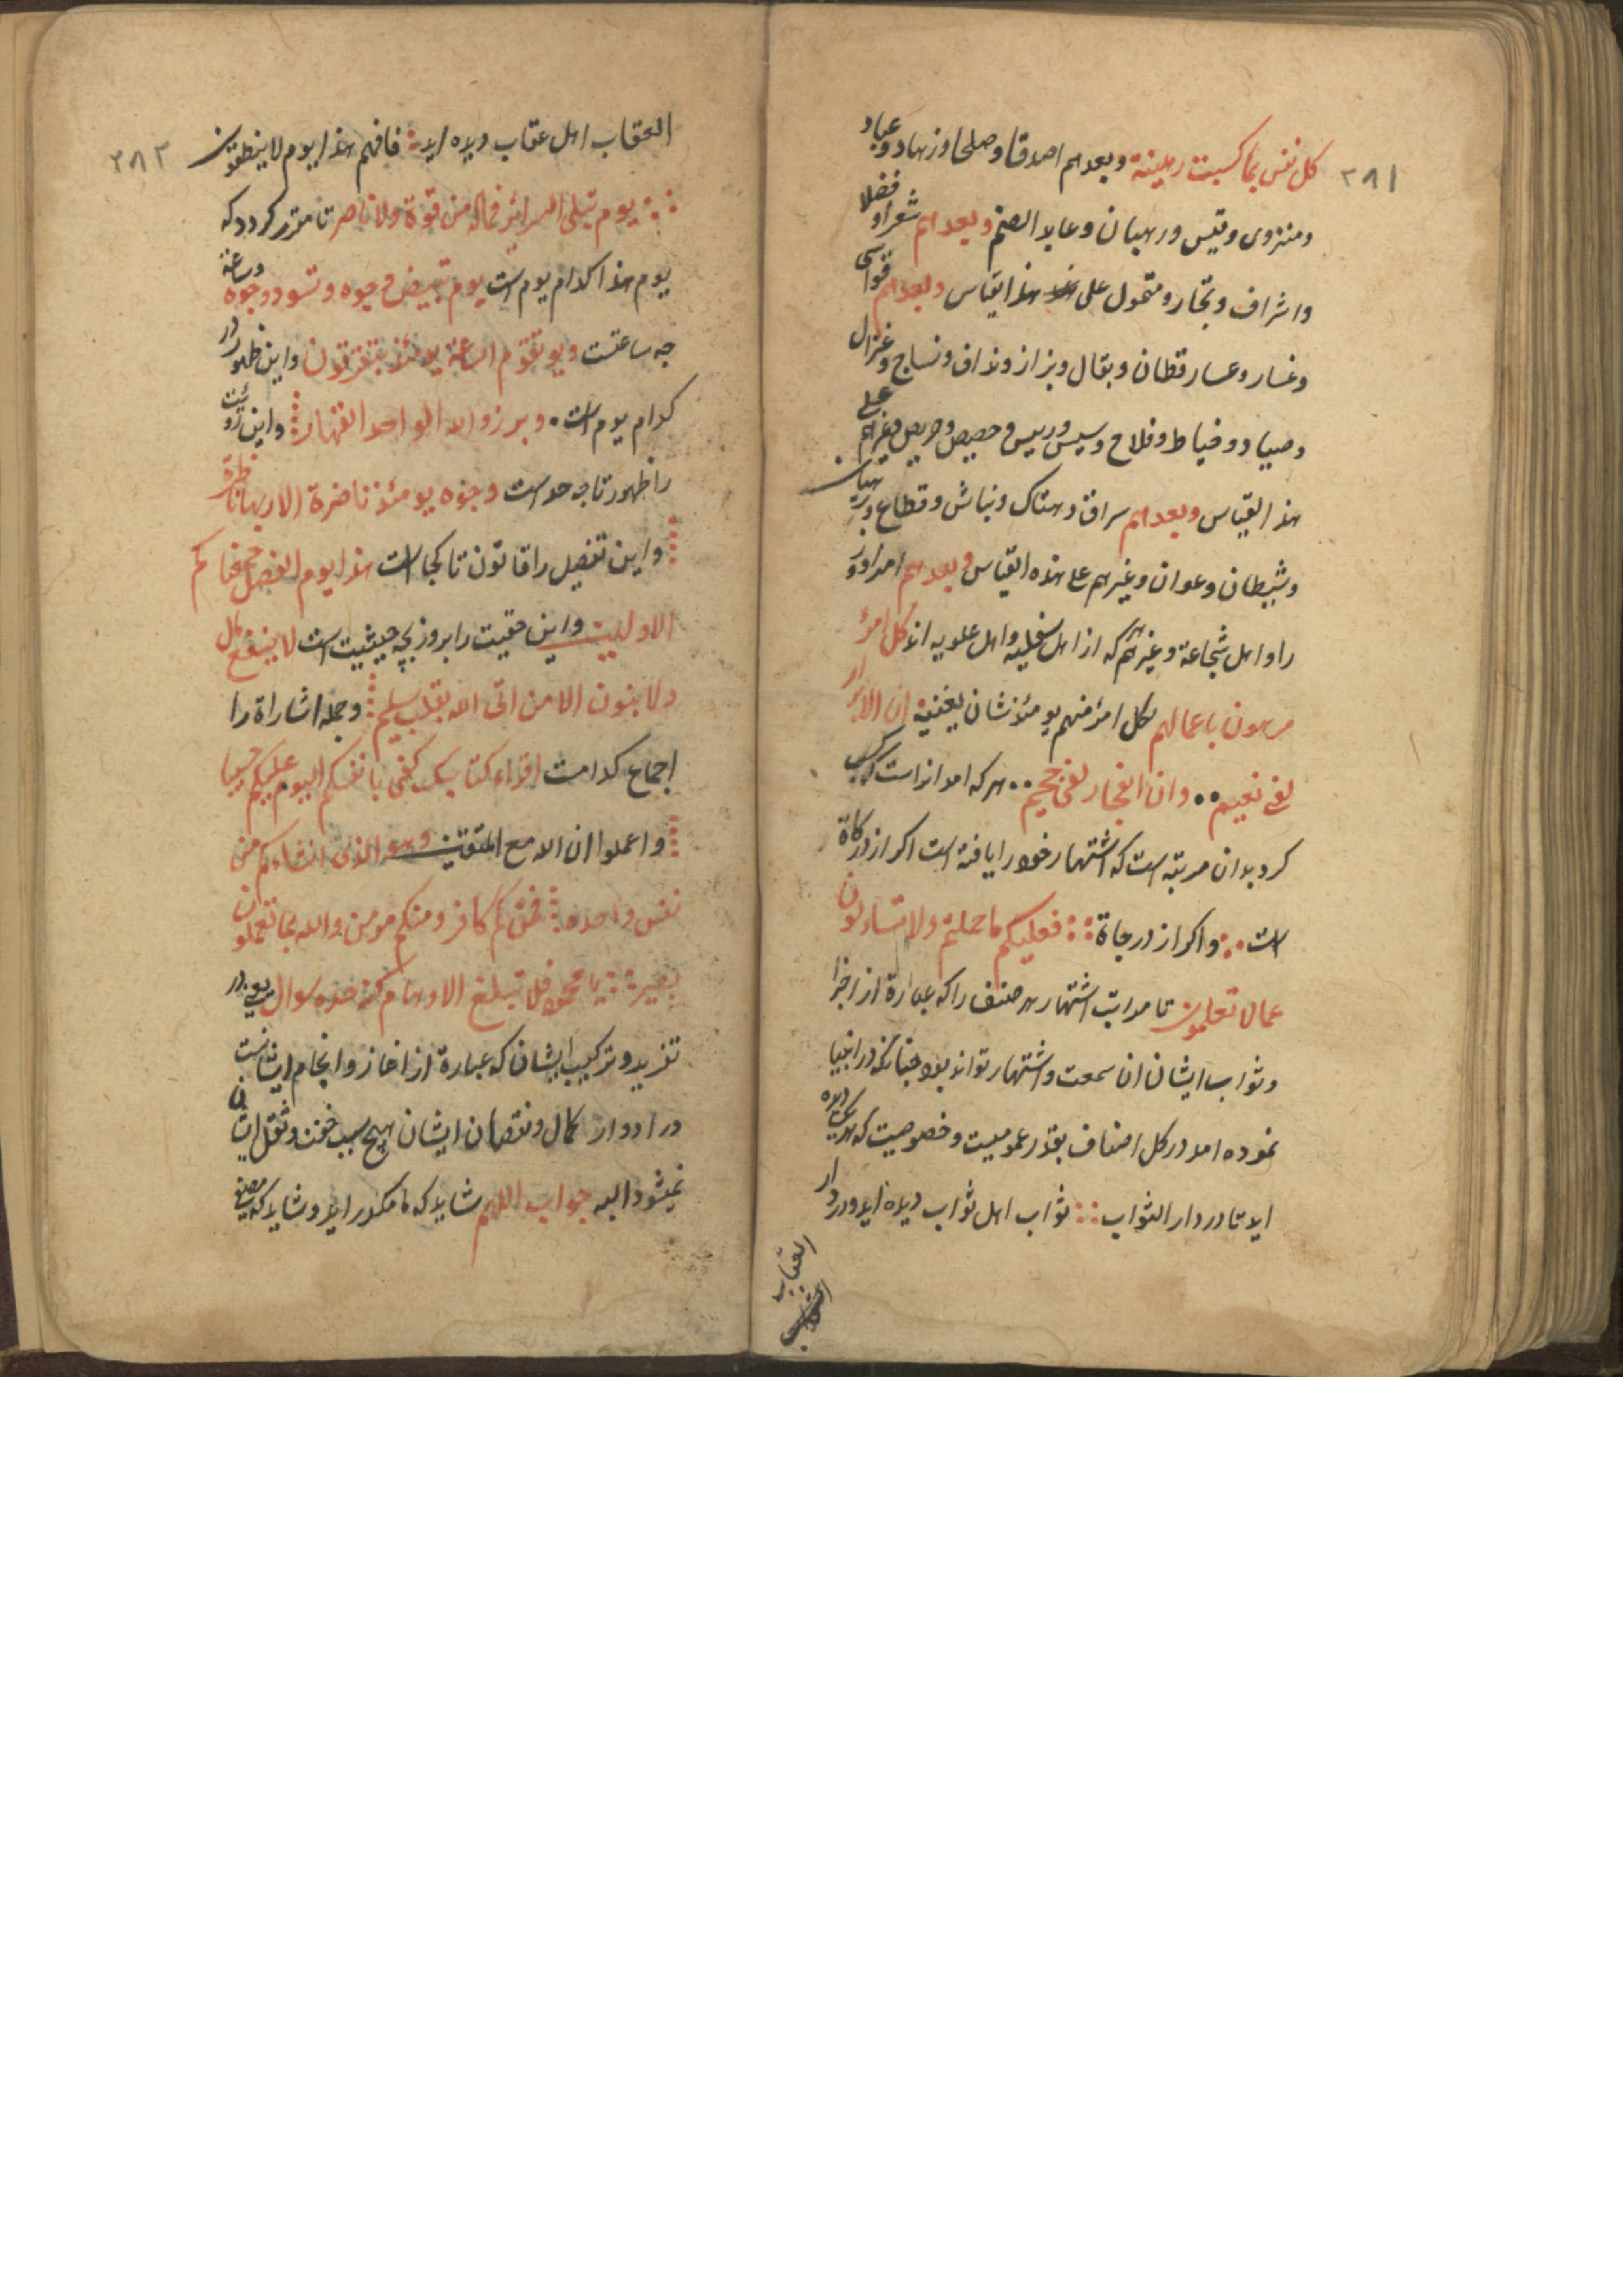 ۲۸۱
كل نفس بما كسبت رهينة وبعدهم اصدقا وصلحا وزهاد وعباد
ومنزوی وقیس ورهبان وعابد الصنم وبعدهم شعرا وفضلا
واشراف وتجار ومتمول علی هذا القیاس وبعدهم قواسی
وغسار وعسار قطان وبقال وبزاز ونداف ونساج وغزال
وصیاد وخیاط وفلاح وسیس وریس وحصیص وحریص وغیرهم علی
هذا القیاس وبعدهم سراق وهتاک ونباش وقطاع
وشیطان وعوان وغیرهم علی هذه القیاس وبعدهم امرا
را واهل شجاعة وغیرهم که از اهل سفلیه واهل علویه اند كل امرؤ
مرهون باعمالهم لكل امرئ منهم يومئذ شان يغنيه ان الابرار
لفی نعیم وان الفجار لفی جحیم هرکه امد انراست
کرد بدان مرتبه است که اشتهار خود را یافته است اکر از درکاة
است واکر از درجاة فعليكم ما حملتم ولا تتساءلون
عما لا تعلمون تا مراتب اشتهار هر صنف را که عبارة از اجزا
وثواب ایشان ان سمعت واشتهار تواند بود چنانکه در انبیا
نموده امد در کل اصناف بقدر عمومیت وخصوصیت که هریکی دیده
اید تا در دار الثواب ثواب اهل ثواب دیده اید ودر دار
العقاب
۲۸۲
العقاب اهل عقاب دیده اید فافهم هذا يوم لا ينطقون
يوم تبلى السرائر فماله من قوة ولا ناصر تا مقرر کردد که
یوم هذا کدام یوم است يوم تبيض وجوه وتسود وجوه وساعة
چه ساعتست ويوم تقوم الساعة يومئذ يتفرقون واین ظهور در
کدام یوم است وبرزوا لله الواحد القهار واین رویت
را ظهور تا چه حد است وجوه يومئذ ناضرة الى ربها ناظرة
واین تفصیل را قانون تا کجا است هذا يوم الفصل جمعناكم
الاولين واین حقیت را بروز بچه حیثیت است لا ينفع مال
ولا بنون الا من اتى الله بقلب سليم وجمله اشاراة را
اجماع کدامست اقراء كتابك كفى بانفسكم اليوم عليكم حسيبا
واعملوا ان الله مع المتقين وهو الذى انشاءكم من
نفس واحده فمنكم كافر ومنكم مومن والله بما تعملون
بصير یا محمود فلا تبلغ الاوهام كنه حده سوال
تفرید وترکیب ایشان که عبارة از اغاز وانجام ایشانست
در ادوار کمال ونقصان ایشان هیچ سبب خفت وثقل ایشان
نمیشود البه جواب اللهم شاید که ما مکدر اید وشاید که مصفی